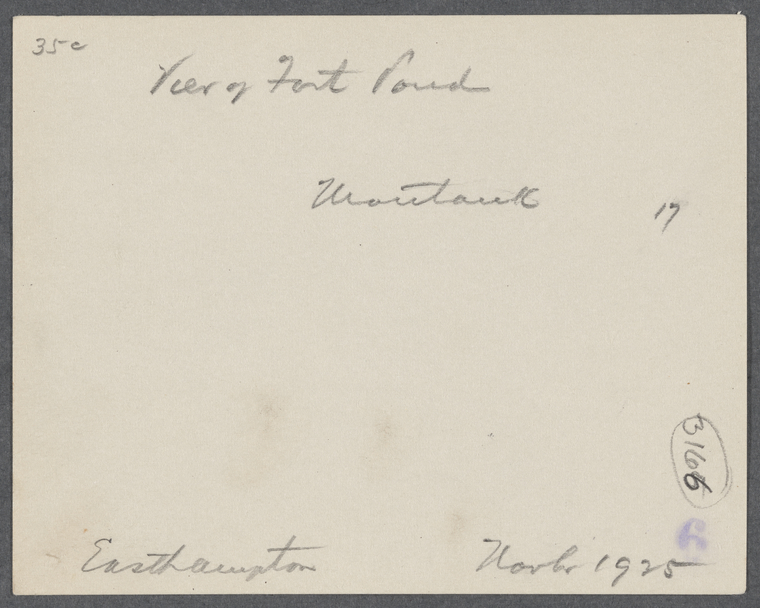 35c
View of Fort Pond
Montauk
17
3166
6
Easthampton
Novbr 1925